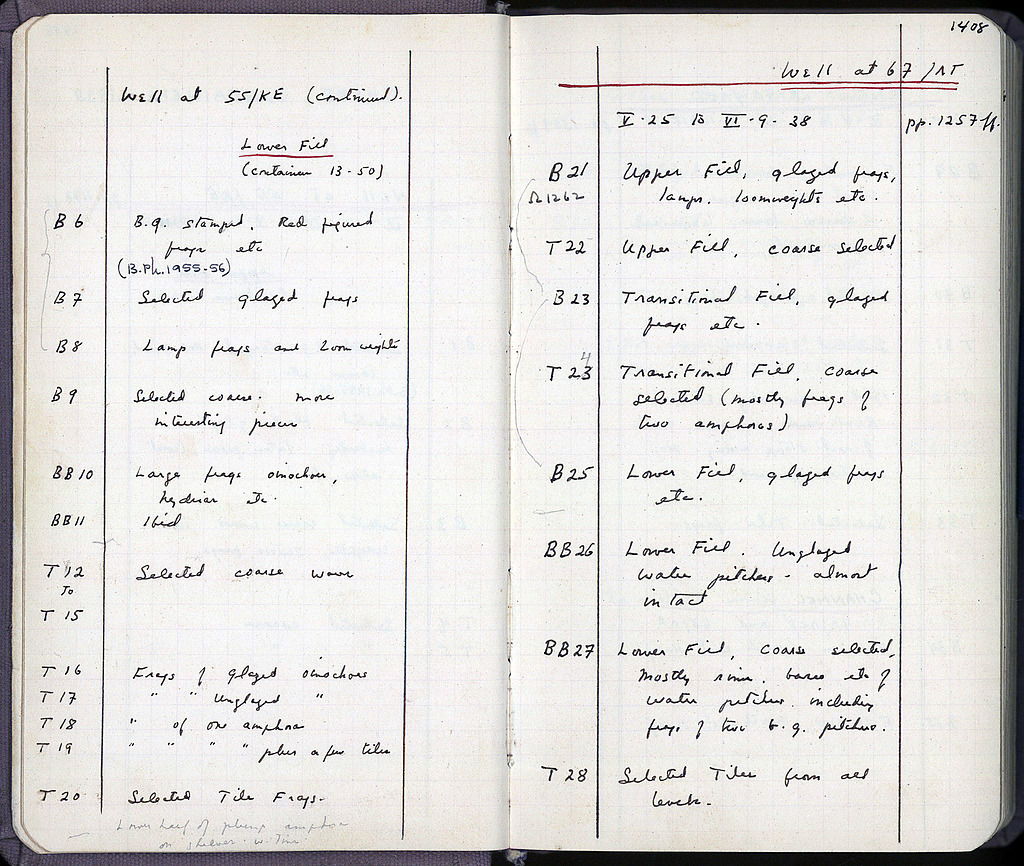 Well at 55/KE (continued).
Lower Fill
(container 13-50)
B 6 B.g. stamped, Red figured
frags etc
(B.Ph. 1955-56)
B 7 Selected glazed frags
B 8 Lamp frags and loomweights
B 9 Selected coarse. more
interesting pieces
BB 10 Large frags oinochoes,
hydriae etc.
BB 11 Ibid
T 12 Selected coarse ware
To
T 15
T 16 Frags of glazed oinochoes
T 17 " " Unglazed "
T 18 " of one amphora
T 19 " " " " plus a few tiles
T 20 Selected Tile Frags.
Lower half of plump amphora
on shelves w. Tins
1408
Well at 67/ΛΤ
V-25 to VI-9-38 pp. 1257 ff.
B 21 Upper Fill, glazed frags,
Ω1262 lamps, loomweights etc.
T 22 Upper Fill, coarse selected
B 23 Transitional Fill, glazed
frags etc.
4
T 23 Transitional Fill, coarse
selected (mostly frags of
two amphoras)
B 25 Lower Fill, glazed frags
etc.
BB 26 Lower Fill. Unglazed
water pitchers - almost
intact
BB 27 Lower Fill, coarse selected,
mostly rims, bases etc of
water pitchers including
frags of two b.g. pitchers.
T 28 Selected Tiles from all
levels.